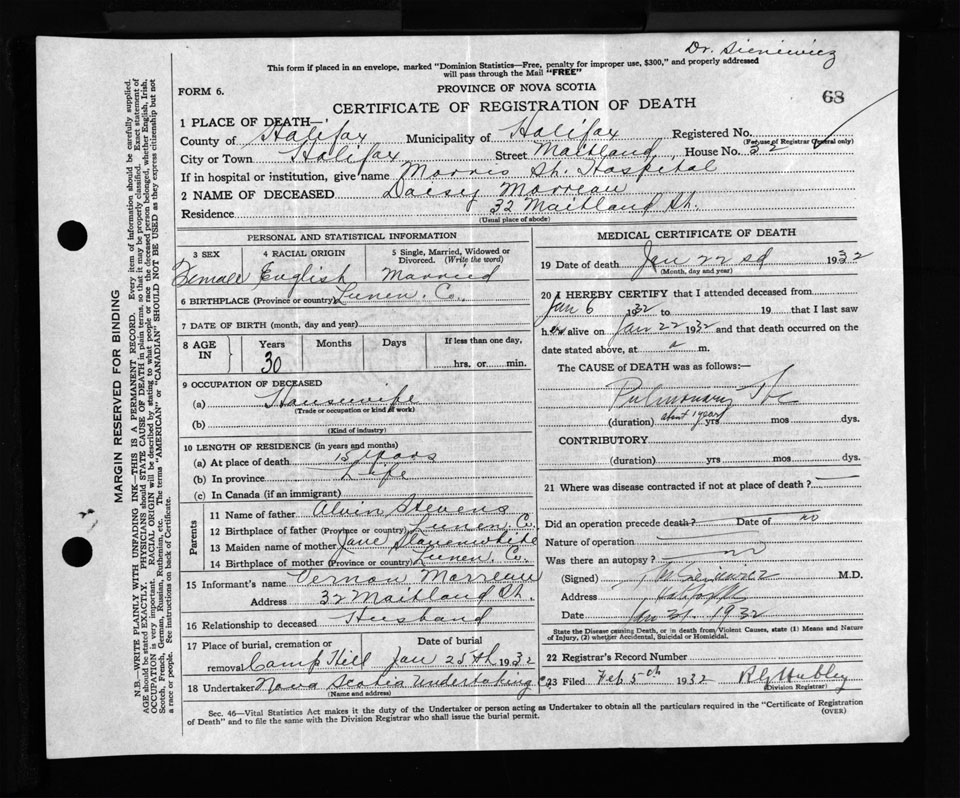 Dr. Sieniewicz
This form if placed in an envelope, marked "Dominion Statistics—Free, penalty for improper use, $300," and properly addressed
will pass through the Mail "FREE"
FORM 6.
PROVINCE OF NOVA SCOTIA
68
CERTIFICATE OF REGISTRATION OF DEATH
1 PLACE OF DEATH—
County of Halifax Municipality of Halifax Registered No.
(For use of Registrar General only)
City or Town Halifax Street Maitland, House No. 32
If in hospital or institution, give name Morris St. Hospital
2 NAME OF DECEASED Daisey Morreau
Residence 32 Maitland St.
(Usual place of abode)
PERSONAL AND STATISTICAL INFORMATION
3 SEX 4 RACIAL ORIGIN 5 Single, Married, Widowed or
Divorced. (Write the word)
Female English Married
6 BIRTHPLACE (Province or country) Lunen. Co.
7 DATE OF BIRTH (month, day and year)
8 AGE IN Years Months Days If less than one day,
30 hrs. or min.
9 OCCUPATION OF DECEASED
(a) Housewife
(Trade or occupation or kind of work)
(b)
(Kind of industry)
10 LENGTH OF RESIDENCE (in years and months)
(a) At place of death 15 years
(b) In province Life
(c) In Canada (if an immigrant)
Parents
11 Name of father Alvin Stevens
12 Birthplace of father (Province or country) Lunen. Co.
13 Maiden name of mother Jane Slauenwhite
14 Birthplace of mother (Province or country) Lunen. Co.
15 Informant's name Vernon Morreau
Address 32 Maitland St.
16 Relationship to deceased Husband
17 Place of burial, cremation or Date of burial
removal Camp Hill Jan 25th 1932
18 Undertaker Nova Scotia Undertaking Co
(Name and address)
MEDICAL CERTIFICATE OF DEATH
19 Date of death Jan 22nd 1932
(Month, day and year)
20 I HEREBY CERTIFY that I attended deceased from
Jan 6 1932 to 19 that I last saw
her alive on Jan 22 1932 and that death occurred on the
date stated above, at a m.
The CAUSE of DEATH was as follows:—
Pulmonary Tbc
(duration) about 1 year yrs mos dys.
CONTRIBUTORY
(duration) yrs mos dys.
21 Where was disease contracted if not at place of death?
Did an operation precede death? Date of no
Nature of operation
Was there an autopsy? no
(Signed) M.D.
Address Halifax
Date 1932
State the Disease causing Death, or in death from Violent Causes, state (1) Means and Nature
of Injury, (2) whether Accidental, Suicidal or Homicidal.
22 Registrar's Record Number
23 Filed Feb 5th 1932
(Division Registrar)
Sec. 46—Vital Statistics Act makes it the duty of the Undertaker or person acting as Undertaker to obtain all the particulars required in the "Certificate of Registration
of Death" and to file the same with the Division Registrar who shall issue the burial permit.
(OVER)
MARGIN RESERVED FOR BINDING
N.B.—WRITE PLAINLY WITH UNFADING INK—THIS IS A PERMANENT RECORD. Every item of information should be carefully supplied.
AGE should be stated EXACTLY. PHYSICIANS should STATE CAUSE OF DEATH in plain terms, so that it may be properly classified. Exact statement of
OCCUPATION is very important. RACIAL ORIGIN will be described by stating to what people or race the deceased person belonged, whether English, Irish,
Scotch, French, German, Russian, Ruthenian, etc. The terms "AMERICAN" or "CANADIAN" SHOULD NOT BE USED as they express citizenship but not
a race or people. See instructions on back of Certificate.